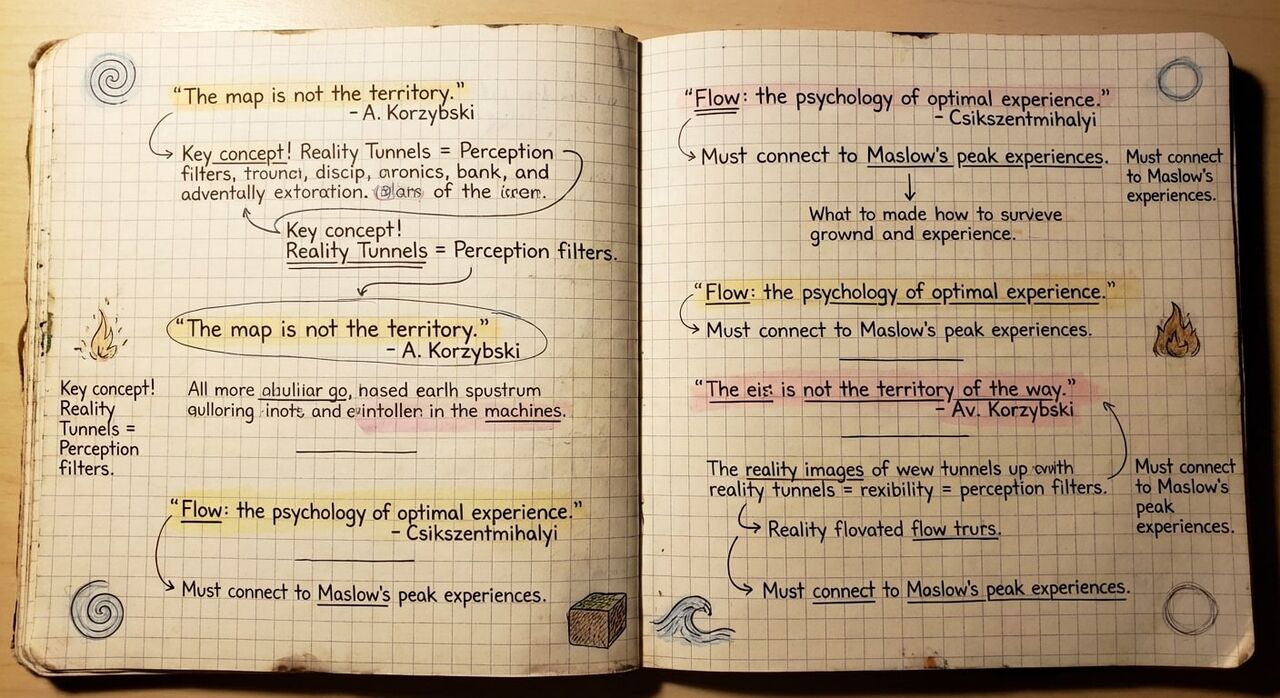 “The map is not the territory.”
– A. Korzybski
Key concept! Reality Tunnels = Perception
filters, discip, bank, and
adventally extoration. of the
Key concept!
Reality Tunnels = Perception filters.
“The map is not the territory.”
– A. Korzybski
Key concept!
Reality
Tunnels =
Perception
filters.
All more go, earlh spustrum
and in the machines.
“Flow: the psychology of optimal experience.”
– Csikszentmihalyi
Must connect to Maslow's peak experiences.
“Flow: the psychology of optimal experience.”
– Csikszentmihalyi
Must connect to Maslow's peak experiences.
Must connect
to Maslow's
experiences.
What to made how to survieve
grownd and experience.
“Flow: the psychology of optimal experience.”
Must connect to Maslow's peak experiences.
“The is not the territory of the way.”
– Av. Korzybski
The reality images of wew tunnels up
reality tunnels = rexibility = perception filters.
Must connect
to Maslow's
peak
experiences.
Reality flovated flow truts.
Must connect to Maslow's peak experiences.